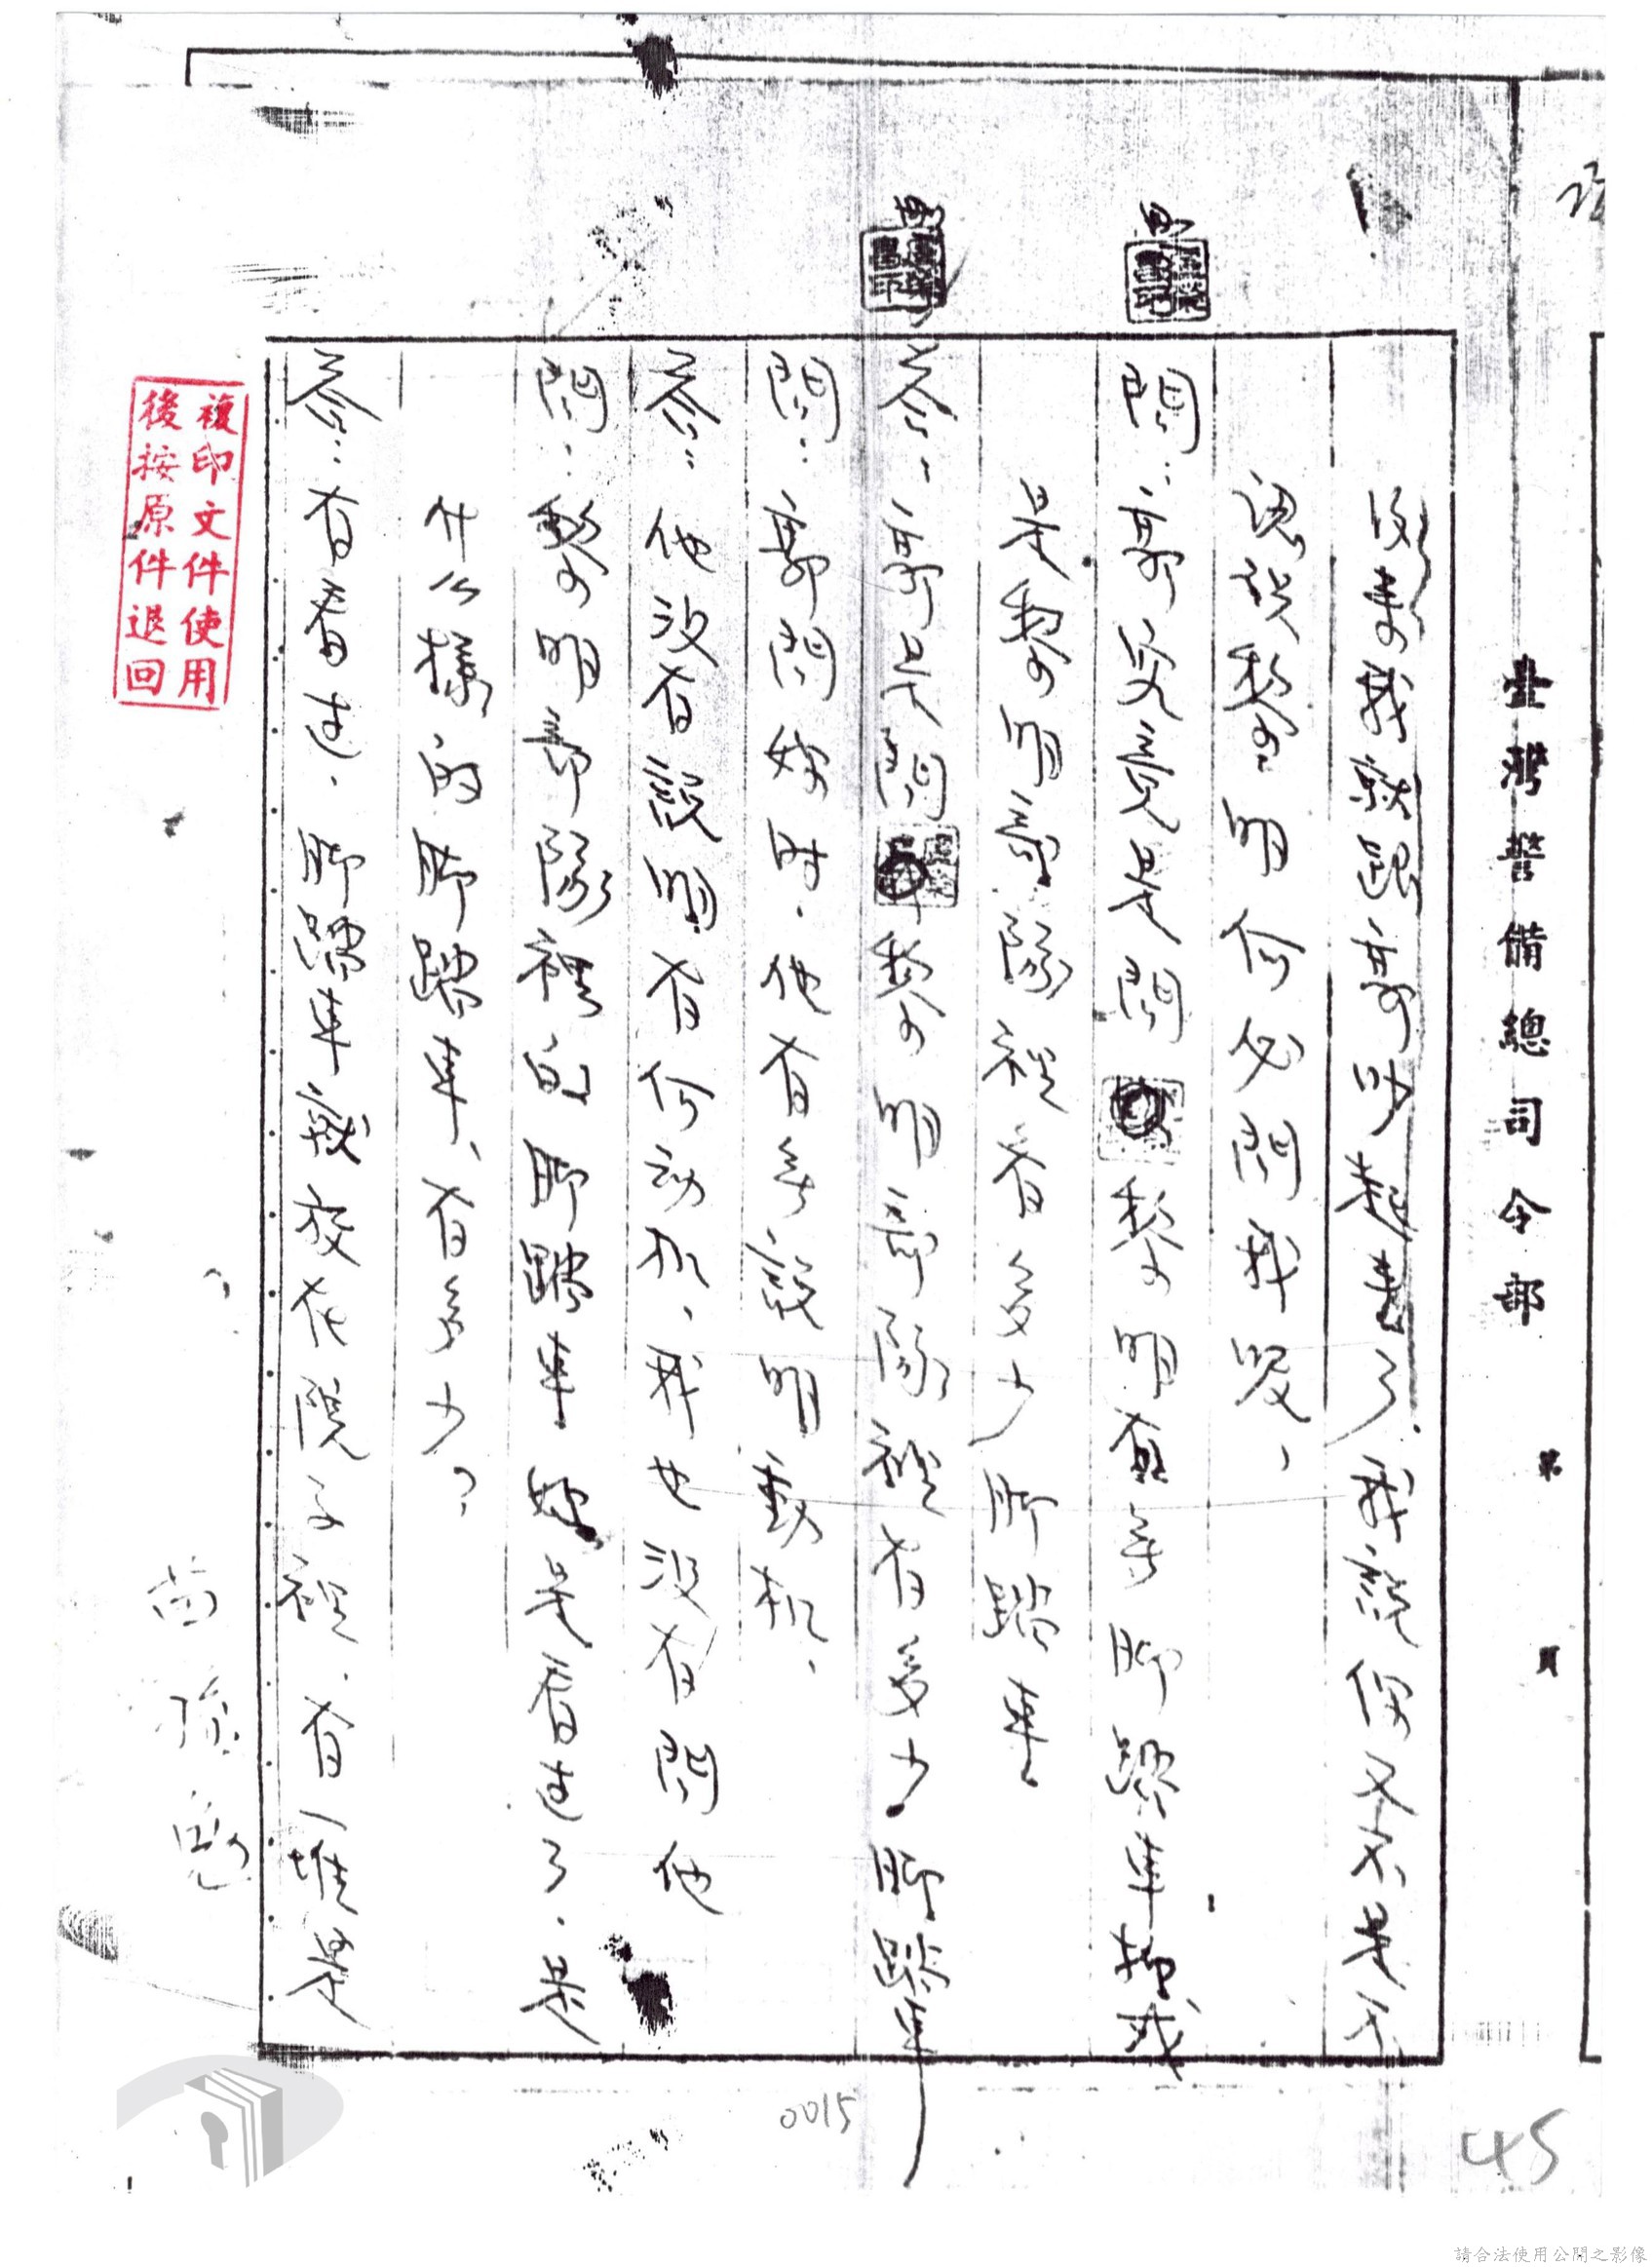 臺灣警備總司令部 第 頁
後來我就跟郭吵起來了我說你又不是不
認識黎明何必問我呢、
問：郭究竟是問黎明有無脚踏車抑或
是黎明部隊裡有多少脚踏車
答：郭是問黎明部隊裡有多少脚踏車
問：郭問妳時、他有無說明動机、
答：他沒有說明有何动机、我也沒有問他
問：黎明部隊裡的脚踏車妳是看見了、是
什么樣的脚踏車、有多少？
答：有看見、脚踏車就放在院子裡、有一堆是
複印文件使用
後按原件退回
0015
45
請合法使用公開之影像